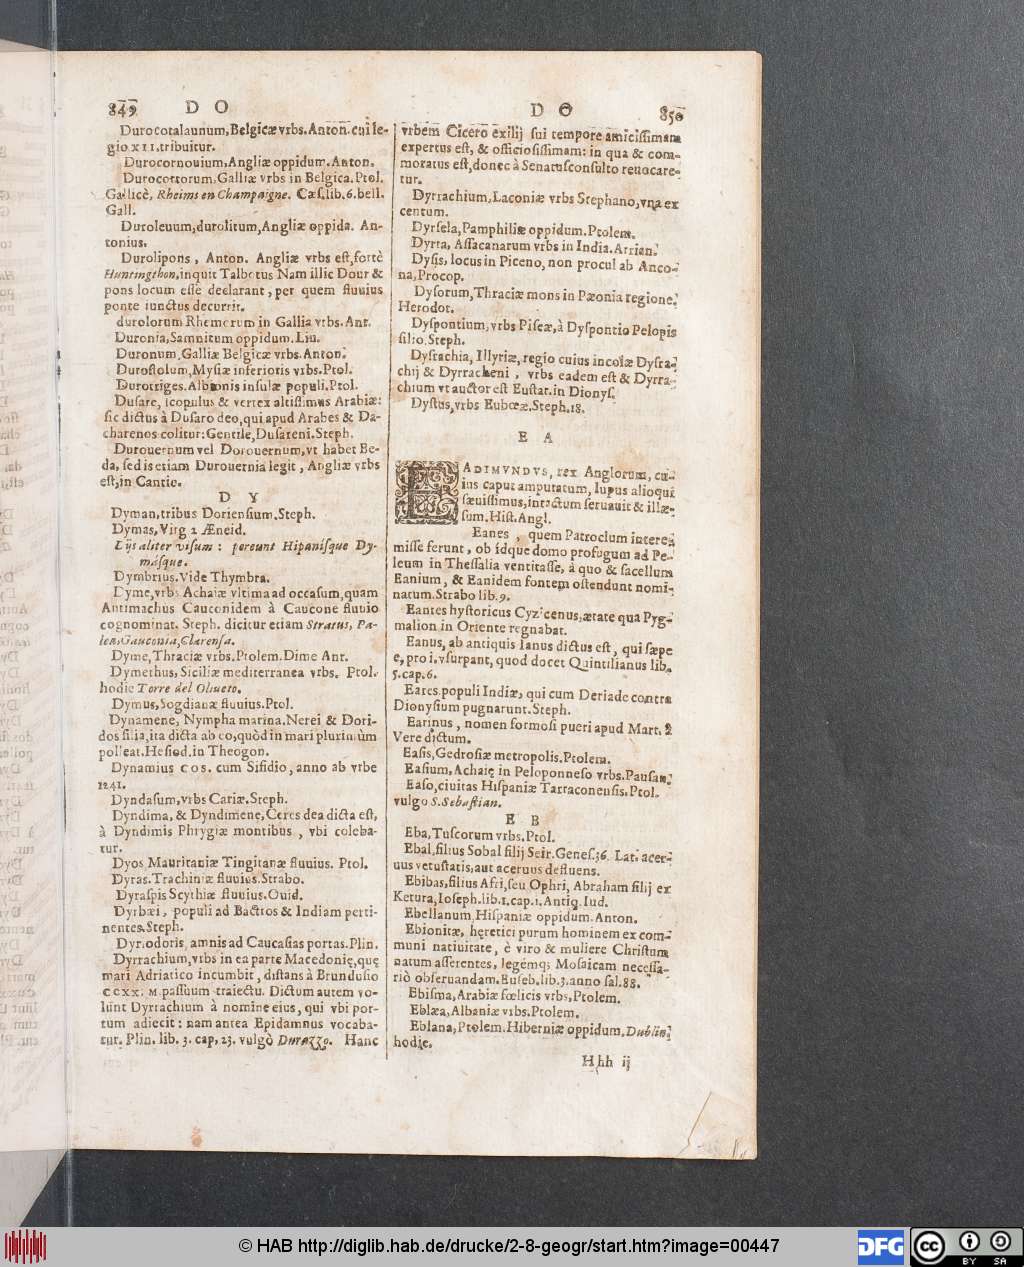 849 D O
Durocotalaunum,Belgicæ vrbs.Anton.cui le-
gio XII.tribuitur.
Durocornouium,Angliæ oppidum.Anton.
Durocottorum.Galliæ vrbs in Belgica.Ptol.
Gallicè, Rheims en Champaigne. Cæs.lib.6.bell.
Gall.
Duroleuum,durolitum,Angliæ oppida. An-
tonius.
Durolipons, Anton. Angliæ vrbs est,fortè
Huntingthon,inquit Talbotus Nam illic Dour &
pons locum esse declarant, per quem fluuius
ponte iunctus decurrit.
durolorum Rhemorum in Gallia vrbs.Ant.
Duronia,Samnitum oppidum.Liu.
Duronum,Galliæ Belgicæ vrbs.Anton.
Durostolum,Mysiæ inferioris vrbs.Ptol.
Durotriges.Albionis insulæ populi.Ptol.
Dusare, scopulus & vertex altissimus Arabiæ:
sic dictus à Dusaro deo,qui apud Arabes & Da-
charenos colitur:Gentile,Dusareni.Steph.
Durouernum vel Dorouernum,vt habet Be-
da, sed is etiam Durouernia legit, Angliæ vrbs
est,in Cantio.
D Y
Dyman,tribus Doriensium.Steph.
Dymas,Virg 2 Æneid.
Lijs aliter visum: pereunt Hipanisque Dy-
másque.
Dymbrius.Vide Thymbra.
Dyme,vrbs Achaiæ vltima ad occasum,quam
Antimachus Cauconidem à Caucone fluuio
cognominat. Steph. dicitur etiam Stratus, Pa-
lea,Gauconia,Clarensa.
Dyme,Thraciæ vrbs.Ptolem.Dime Ant.
Dymethus,Siciliæ mediterranea vrbs. Ptol.
hodie Torre del Oliueto.
Dymus,Sogdianæ fluuius.Ptol.
Dynamene, Nympha marina.Nerei & Dori-
dos filia,ita dicta ab eo,quòd in mari plurimùm
polleat.Hesiod.in Theogon.
Dynamius COS. cum Sifidio, anno ab vrbe
1241.
Dyndasum,vrbs Cariæ.Steph.
Dyndima, & Dyndimene,Ceres dea dicta est,
à Dyndimis Phrygiæ montibus, vbi coleba-
tur.
Dyos Mauritaniæ Tingitanæ fluuius. Ptol.
Dyras.Trachiniæ fluuius.Strabo.
Dyraspis Scythiæ fluuius.Ouid.
Dyrbæi, populi ad Bactros & Indiam perti-
nentes.Steph.
Dyriodoris, amnis ad Caucasias portas.Plin.
Dyrrachium,vrbs in ea parte Macedonię,quę
mari Adriatico incumbit, distans à Brundusio
CCXX. M passuum traiectu. Dictum autem vo-
lunt Dyrrachium à nomine eius, qui vbi por-
tum adiecit: nam antea Epidamnus vocaba-
tur. Plin. lib. 3. cap. 23. vulgò Durazzo. Hanc
D O 850
vrbem Cicero exilij sui tempore amicissimam
expertus est, & officiosissimam: in qua & com-
moratus est,donec à Senatusconsulto reuocare-
tur.
Dyrrachium,Laconiæ vrbs Stephano,vna ex
centum.
Dyrsela,Pamphiliæ oppidum.Ptolem.
Dyrta, Assacanarum vrbs in India.Arrian.
Dysis, locus in Piceno, non procul ab Anco-
na,Procop.
Dysorum,Thraciæ mons in Pæonia regione.
Herodot.
Dyspontium,vrbs Piseæ,à Dyspontio Pelopis
filio.Steph.
Dystachia, Illyriæ,regio cuius incolæ Dysta-
chij & Dyrracheni, vrbs eadem est & Dyrra-
chium vt auctor est Eustat.in Dionys.
Dystus,vrbs Eubœæ.Steph.18.
E A
EADIMVNDVS, rex Anglorum, cu-
ius caput amputatum, lupus alioqui
sæuissimus,intactum seruauit & illæ-
sum.Hist.Angl.
Eanes, quem Patroclum intere-
misse ferunt, ob idque domo profugum ad Pe-
leum in Thessalia ventitasse, à quo & sacellum
Eanium, & Eanidem fontem ostendunt nomi-
natum.Strabo lib.9.
Eantes hystoricus Cyzicenus,ætate qua Pyg-
malion in Oriente regnabat.
Eanus, ab antiquis Ianus dictus est, qui sæpe
e, pro i.vsurpant, quod docet Quintilianus lib.
5.cap.6.
Eares populi Indiæ, qui cum Deriade contra
Dionysium pugnarunt.Steph.
Earinus, nomen formosi pueri apud Mart. à
Vere dictum.
Easis,Gedrosiæ metropolis.Ptolem.
Easium,Achaię in Peloponneso vrbs.Pausan.
Easo,ciuitas Hispaniæ Tarraconensis.Ptol.
vulgo S.Sebastian.
E B
Eba,Tuscorum vrbs.Ptol.
Ebal,filius Sobal filij Seir.Genes.36. Lat. acer-
uus vetustatis,aut aceruus defluens.
Ebibas,filius Afri,seu Ophri, Abraham filij ex
Ketura,Ioseph.lib.1.cap.1.Antiq.Iud.
Ebellanum,Hispaniæ oppidum.Anton.
Ebionitæ, hęretici purum hominem ex com-
muni natiuitate, è viro & muliere Christum
natum asserentes, legémq; Mosaicam necessa-
riò obseruandam.Euseb.lib.3.anno sal.88.
Ebisma,Arabiæ fœlicis vrbs,Ptolem.
Eblæa,Albaniæ vrbs.Ptolem.
Eblana,Ptolem.Hiberniæ oppidum,Dublin
hodie.
Hhh ij
© HAB http://diglib.hab.de/drucke/2-8-geogr/start.htm?image=00447
DFG
cc
BY SA